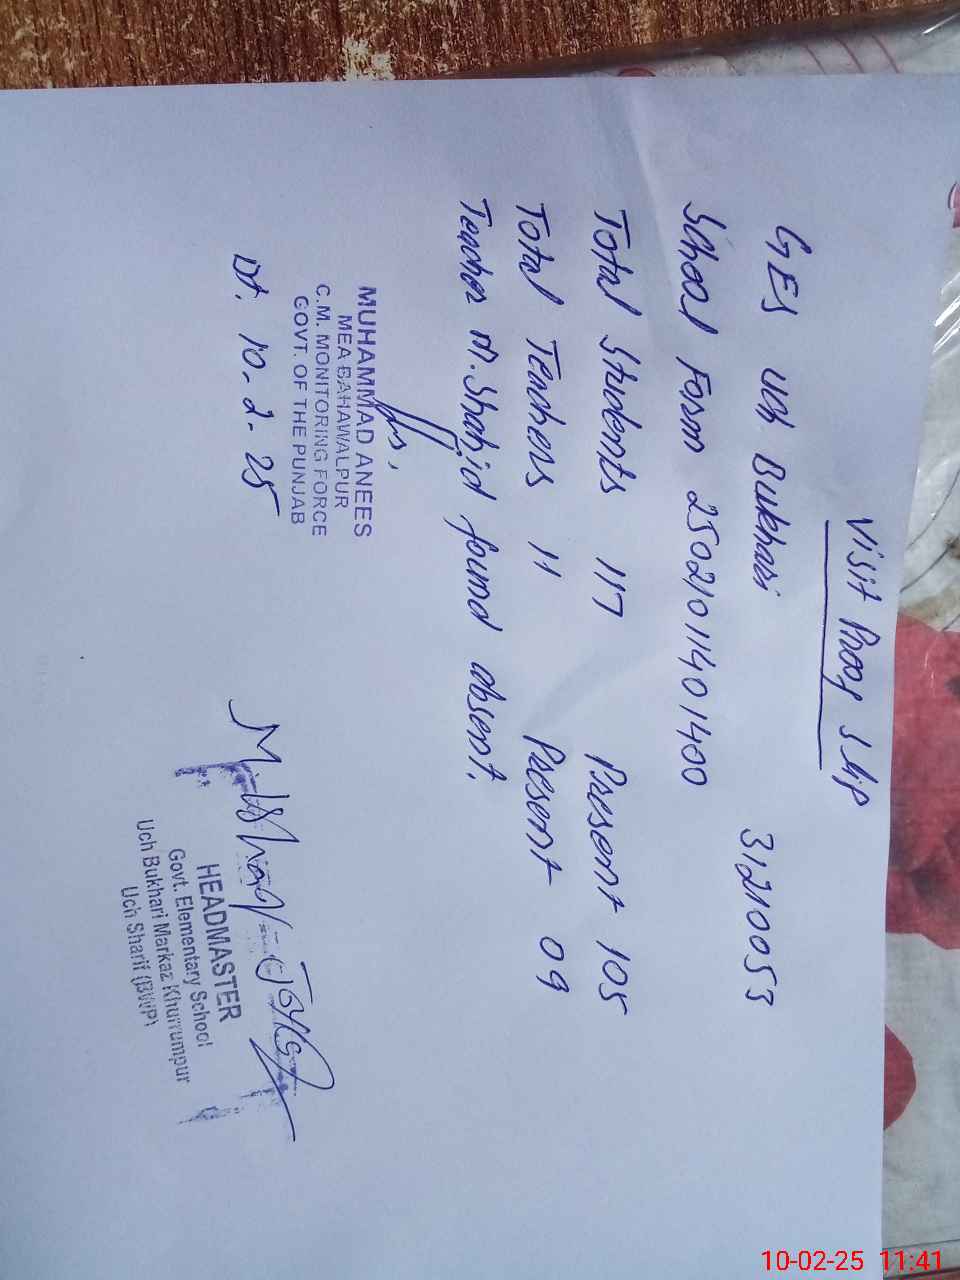 Visit Proof Slip
GES Uch Bukhari 31210053
School Form 25021011401400
Total Students 117 Present 105
Total Teachers 11 Present 09
Teacher M. Shahid found absent.
MUHAMMAD ANEES
MEA BAHAWALPUR
C.M. MONITORING FORCE
GOVT. OF THE PUNJAB
Dt. 10-2-25
HEADMASTER
Govt. Elementary School
Uch Bukhari Markaz Khurrumpur
Uch Sharif (BWP)
10-02-25 11:41